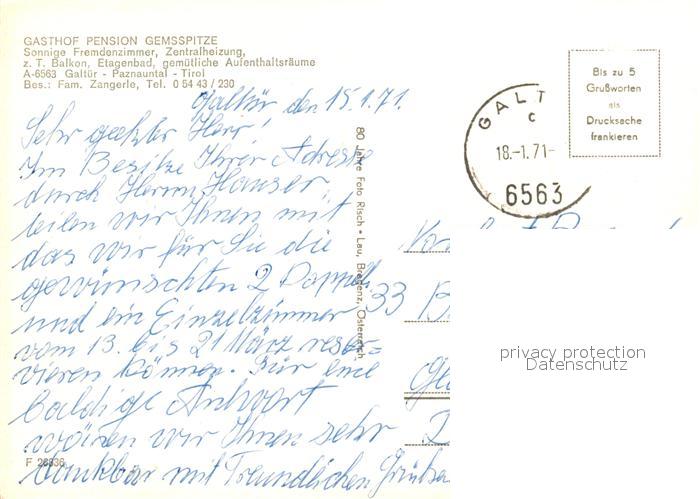 GASTHOF PENSION GEMSSPITZE
Sonnige Fremdenzimmer, Zentralheizung,
z. T. Balkon, Etagenbad, gemütliche Aufenthaltsräume
A-6563 Galtür - Paznauntal - Tirol
Bes.: Fam. Zangerle, Tel. 0 54 43 / 230
Galtür den 15.1.71.
Sehr geehrter Herr!
Im Besitze Ihrer Adresse
durch Herrn Hauser,
teilen wir Ihnen mit
das wir für Sie die
gewünschten 2 Doppel
und ein Einzelzimmer
vom 13. bis 21 März reser=
vieren können. Für eine
baldige Antwort
wären wir Ihnen sehr
dankbar mit Freundlichen Grüßen
F 26836
80 Jahre Foto Risch • Lau, Bregenz, Österreich
Bis zu 5
Grußworten
als
Drucksache
frankieren
GALT
c
18.-1.71-
6563
33 B
privacy protection
Datenschutz